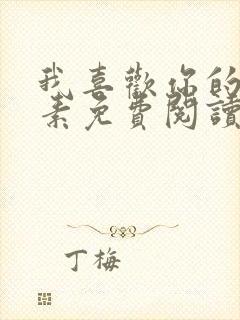 我喜歡你的
素免費閱讀
丁梅